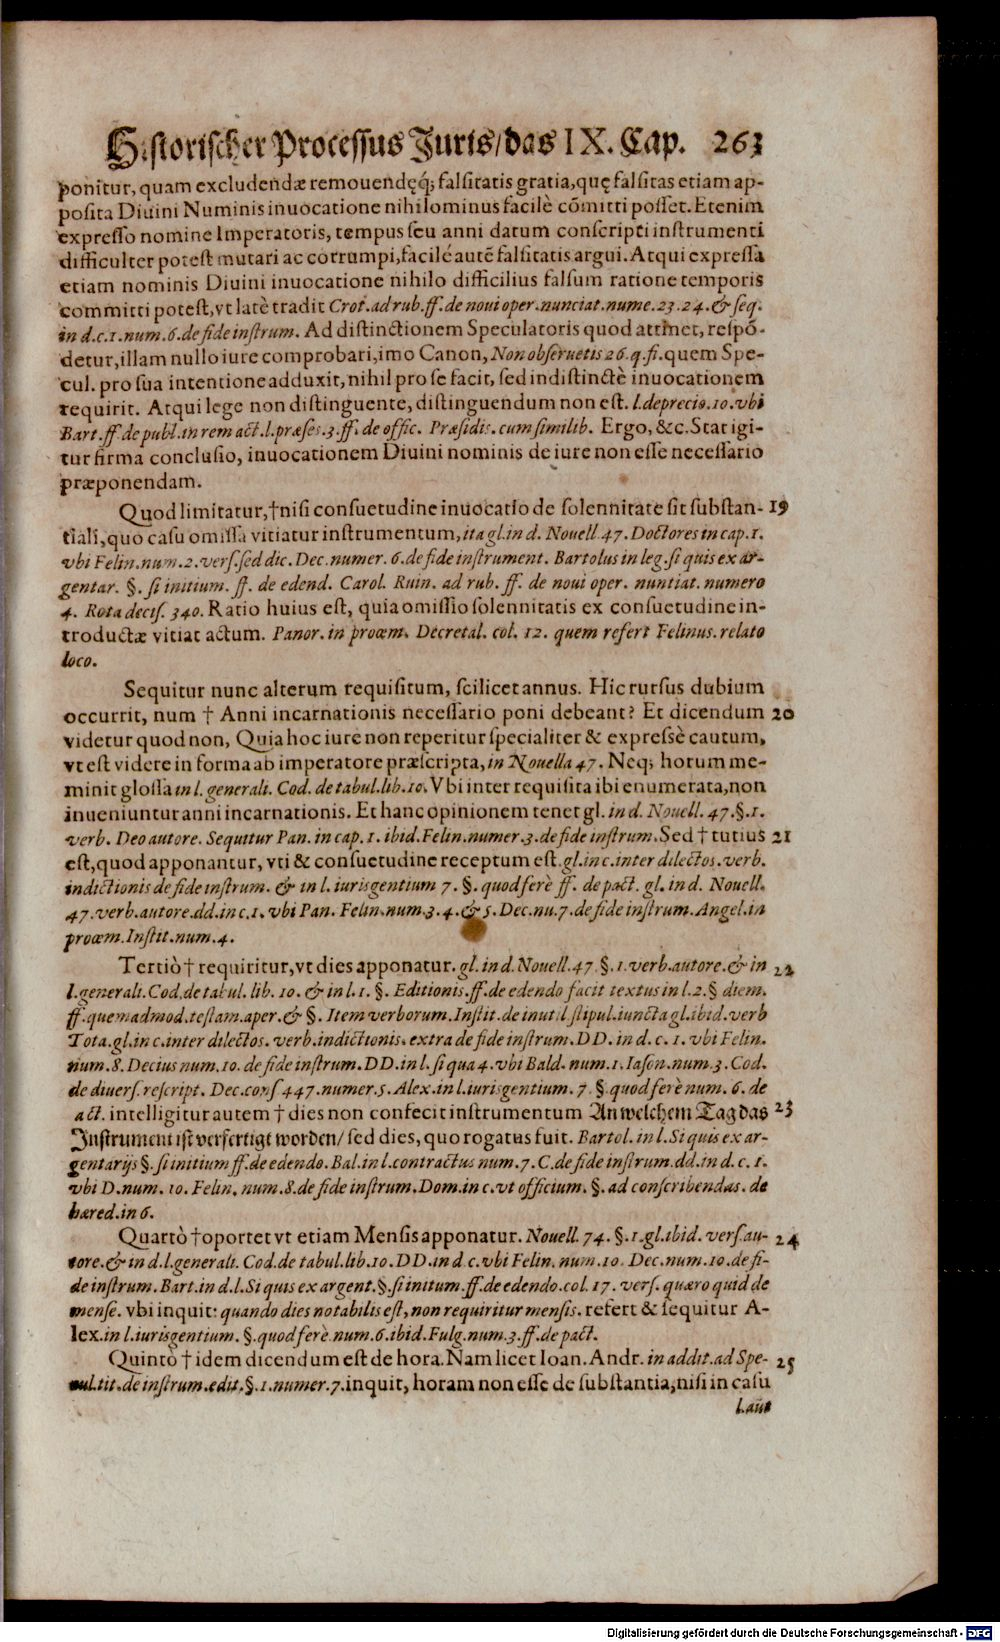 Historischer Processus Juris/das IX. Cap. 263
ponitur, quam excludendæ removendęq́; falsitatis gratia, quę falsitas etiam ap-
posita Diuini Numinis inuocatione nihilominus facilè cõmitti posset. Etenim
expresso nomine Imperatoris, tempus seu anni datum conscripti instrumenti
difficulter potest mutari ac corrumpi, facilé autẽ falsitatis argui. Atqui expressa
etiam nominis Diuini inuocatione nihilo difficilius falsum ratione temporis
committi potest, vt latè tradit Crot. ad rub. ff. de noui oper. nunciat. nume. 23. 24. & seq.
in d. c. 1. num. 6. de fide instrum. Ad distinctionem Speculatoris quod attinet, respõ-
detur, illam nullo iure comprobari, imo Canon, Non obseruetis 26. q. fi. quem Spe-
cul. pro sua intentione adduxit, nihil pro se facit, sed indistinctè inuocationem
requirit. Atqui lege non distinguente, distinguendum non est. l. de precio. 10. vbi
Bart. ff. de publ. in rem act. l. præses. 3. ff. de offic. Præsidis. cum similib. Ergo, &c. Stat igi-
tur firma conclusio, inuocationem Diuini nominis de iure non esse necessario
præponendam.
Quod limitatur, † nisi consuetudine inuocatio de solennitate sit substan- 19
tiali, quo casu omissa vitiatur instrumentum, ita gl. in d. Nouell. 47. Doctores in cap. 1.
vbi Felin. num. 2. vers. sed dic. Dec. numer. 6. de fide instrument. Bartolus in leg. si quis ex ar-
gentar. §. si initium. ff. de edend. Carol. Ruin. ad rub. ff. de noui oper. nuntiat. numero
4. Rota decis. 340. Ratio huius est, quia omissio solennitatis ex consuetudine in-
troductæ vitiat actum. Panor. in proœm. Decretal. col. 12. quem refert Felinus. relato
loco.
Sequitur nunc alterum requisitum, scilicet annus. Hic rursus dubium
occurrit, num † Anni incarnationis necessario poni debeant? Et dicendum 20
videtur quod non, Quia hoc iure non reperitur specialiter & expressè cautum,
vt est videre in forma ab imperatore præscripta, in Nouella 47. Neq; horum me-
minit glossa in l. generali. Cod. de tabul. lib. 10. Vbi inter requisita ibi enumerata, non
inueniuntur anni incarnationis. Et hanc opinionem tenet gl. in d. Nouell. 47. §. 1.
verb. Deo autore. Sequitur Pan. in cap. 1. ibid. Felin. numer. 3. de fide instrum. Sed † tutius 21
est, quod apponantur, vti & consuetudine receptum est. gl. in c. inter dilectos. verb.
indictionis de fide instrum. & in l. iurisgentium 7. §. quod ferè ff. de pact. gl. in d. Nouell.
47. verb. autore. dd. in c. 1. vbi Pan. Felin. num. 3. 4. & 5. Dec. nu. 7. de fide instrum. Angel. in
proœm. Instit. num. 4.
Tertiò † requiritur, vt dies apponatur. gl. in d. Nouell. 47. §. 1. verb. autore. & in 22
l. generali. Cod. de tabul. lib. 10. & in l. 1. §. Editionis. ff. de edendo facit textus in l. 2. § diem.
ff. quemadmod. testam. aper. & §. Item verborum. Instit. de inutil. stipul. iuncta gl. ibid. verb
Tota. gl. in c. inter dilectos. verb. indictionis. extra de fide instrum. DD. in d. c. 1. vbi Felin.
num. 8. Decius num. 10. de fide instrum. DD. in l. si qua 4. vbi Bald. num. 1. Iason. num. 3. Cod.
de diuers. rescript. Dec. cons 447. numer. 5. Alex. in l. iurisgentium. 7. §. quod ferè num. 6. de
act. intelligitur autem † dies non confecit instrumentum An welchem Tag das 23
Instrument ist verfertigt worden/ sed dies, quo rogatus fuit. Bartol. in l. Si quis ex ar-
gentarijs §. si initium ff. de edendo. Bal. in l. contractus num. 7. C. de fide instrum. dd. in d. c. 1.
vbi D. num. 10. Felin. num. 8. de fide instrum. Dom. in c. vt officium. §. ad conscribendas. de
hæred. in 6.
Quartò † oportet vt etiam Mensis apponatur. Nouell. 74. §. 1. gl. ibid. vers. au- 24
tore. & in d. l. generali. Cod. de tabul. lib. 10. DD. in d c. vbi Felin. num. 10. Dec. num. 10. de fi-
de instrum. Bart. in d. l. Si quis ex argent. §. si initum. ff. de edendo. col. 17. vers. quæro quid de
mense. vbi inquit: quando dies notabilis est, non requiritur mensis. refert & sequitur A-
lex. in l. iurisgentium. §. quod ferè. num. 6. ibid. Fulg. num. 3. ff. de pact.
Quintò † idem dicendum est de hora. Nam licet Ioan. Andr. in addit. ad Spe- 25
cul. tit. de instrum. edit. §. 1. numer. 7. inquit, horam non esse de substantia, nisi in casu
Digitalisierung gefördert durch die Deutsche Forschungsgemeinschaft - DFG